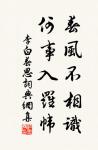 春風不相識
何事入羅幃
李白春思詞典網集